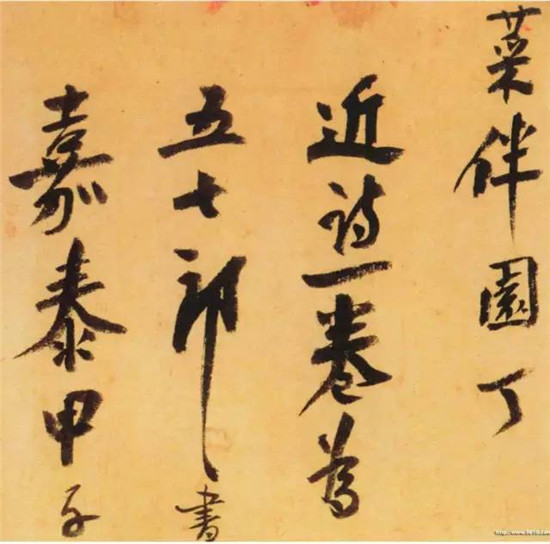 菜伴園丁
近詩一卷為
五七郎書
嘉泰甲子